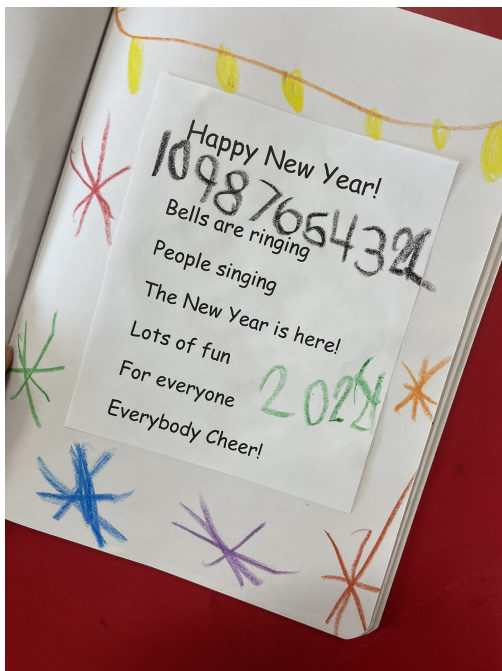 Happy New Year!
10987654321
Bells are ringing
People singing
The New Year is here!
Lots of fun
For everyone
Everybody Cheer!